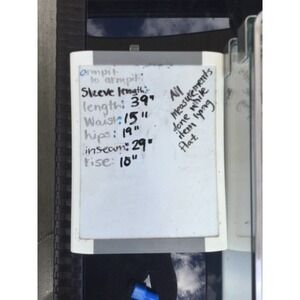 armpit
to armpit:
Sleeve length:
length: 39"
Waist: 15"
hips: 19"
inseam: 29"
rise: 10"
All
measurements
done while
item lying
flat